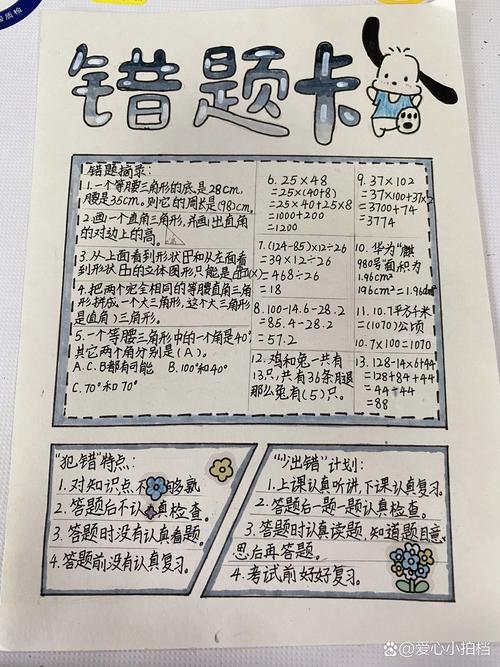 质检
错题卡
错题摘录:
1.一个等腰三角形的底是28cm,
腰是35cm。则它的周长是(98)cm。
2.画一个直角三角形,并画出直角
的对边上的高。
3.从上面看到形状和从左面看
到形状的立体图形只能是(X)
4.把两个完全相同的等腰直角三角
形拼成一个大三角形,这个大三角形
是(直角)三角形。
5.一个等腰三角形中的一个角是40°
其它两个角分别是(A)。
A.C.B都有可能 B.100°和40°
C.70°和70°
6.25×48
=25×(40+8)
=25×40+25×8
=1000+200
=1200
7.(124-85)×12÷26
=39×12÷26
=468÷26
=18
8.100-14.6-28.2
=85.4-28.2
=57.2
12.鸡和兔一共有
13只,共有36条腿
那么兔有(5)只。
9.37×102
=37×100+37×2
=3700+74
=3774
10.华为"麒
980号"面积为
1.96cm²
196cm²=1.96dm²
11.10.7平方千米
=(1070)公顷
10.7×100=1070
13.128-14×6+44
=128+84+44
=44+44
=88
"犯错"特点:
1.对知识点不够熟
2.答题后不认真检查。
3.答题时没有认真看题。
4.答题前没有认真复习。
"少出错"计划:
1.上课认真听讲,下课认真复习。
2.答题后一题一题认真检查。
3.答题时认真读题,知道题目意
思后再答题。
4.考试前好好复习。
爱心小拍档